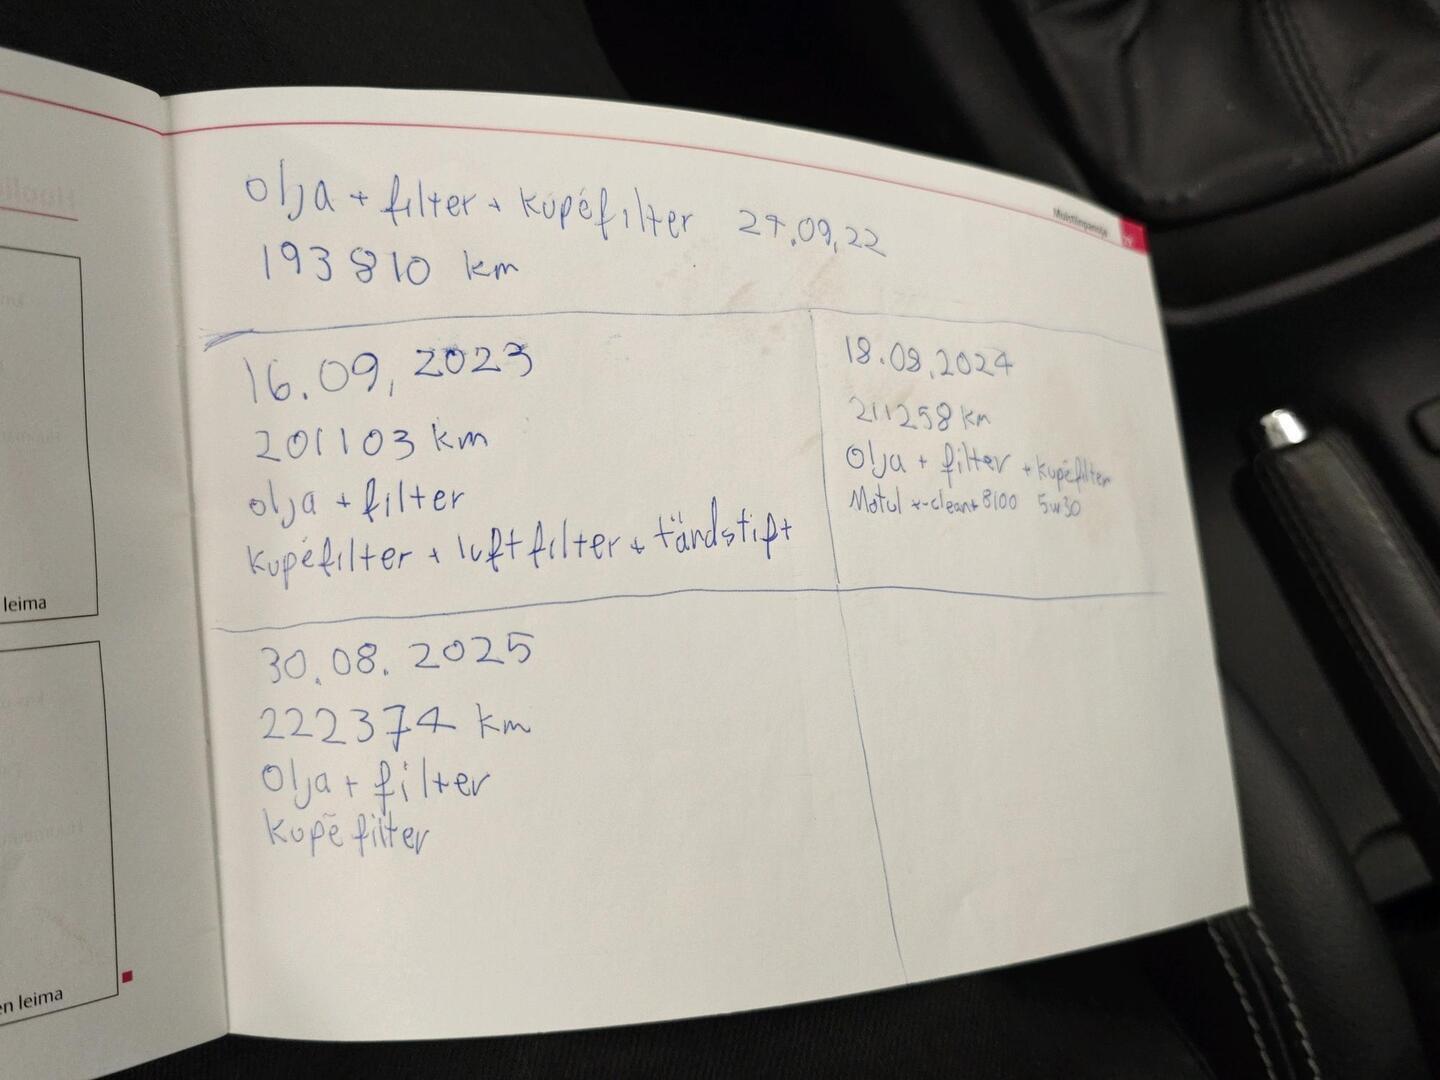 Muistiinpanoja
olja + filter + kupéfilter 27.09.22
193810 km
16.09, 2023
201103 km
olja + filter
kupéfilter + luftfilter + tändstift
18.08.2024
211258 km
Olja + filter + kupéfilter
Motul x-clean+ 8100 5w30
30.08. 2025
222374 km
Olja + filter
kupéfilter
leima
en leima